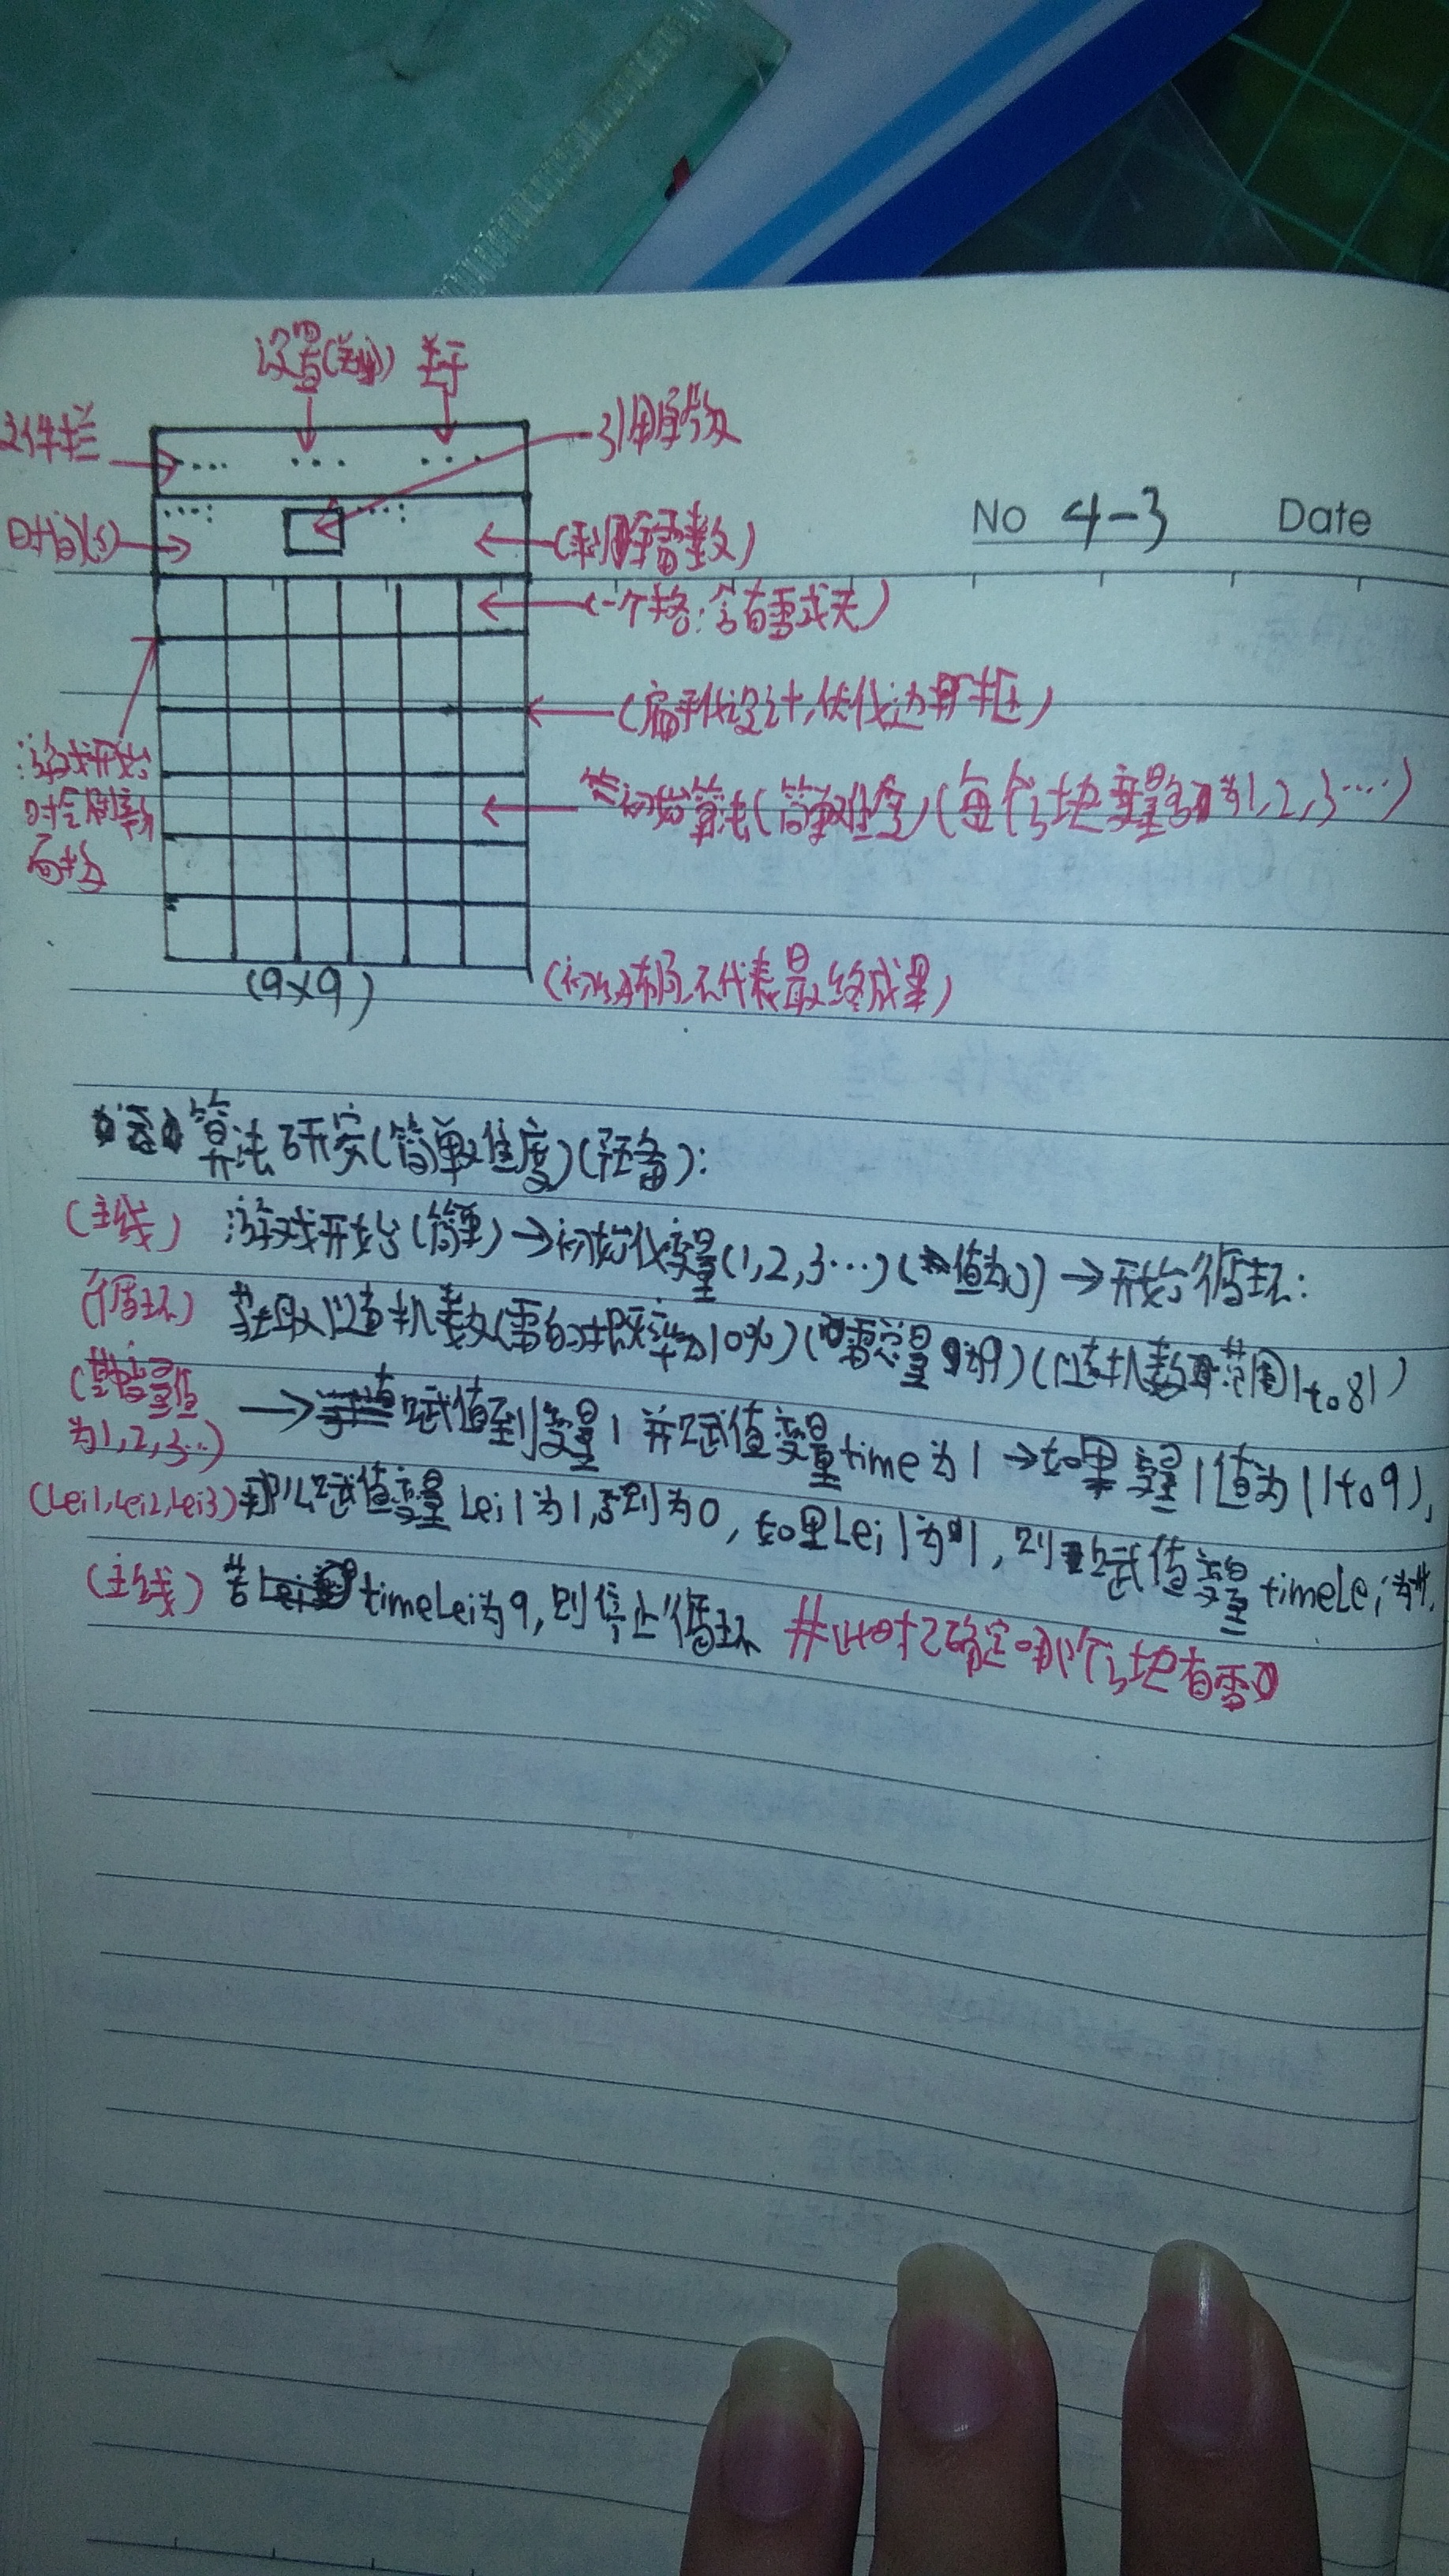 设置(难度) 关于
文件栏
引用字数
No 4-3 Date
时间(s)
(剩余雷数)
(一个格:含有雷或无)
(扁平化设计,优化边框)
游戏开始
时会刷新
初始算法(简单难度)(每个块变量名为1,2,3····)
(9×9)
(初始布局不代表最终成果)
算法研究(简单难度)(预备):
(主线) 游戏开始(简单)→初始化变量(1,2,3···)(值为0)→开始循环:
(循环) 获取随机数(雷的概率为10%)(雷总量为9)(随机数范围1to81)
(变量值
为1,2,3··)
→赋值到变量1并赋值变量time为1→如果变量1值为(1to9),
(Lei1,Lei2,Lei3)那么赋值变量Lei1为1,否则为0,如果Lei1为1,则赋值变量timeLei为
(主线)若timeLei为9,则停止循环 #此时已确定哪个块有雷